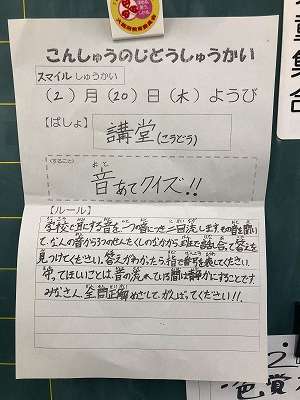 こんしゅうのじどうしゅうかい
スマイルしゅうかい
(2)月(20)日(木)ようび
【ばしょ】
講堂(こうどう)
音あてクイズ!!
【ルール】
学校で耳にする音を一つの音につき二回流します。その音を聞い
て、なんの音か3つのせんたくしのなかから、班で話し合って答えを
見つけてください。答えがわかったら、指で番号を表してください。
守ってほしいことは、音の流れている間は静かにすることです。
みなさん、全問正解めざして、がんばってください!!